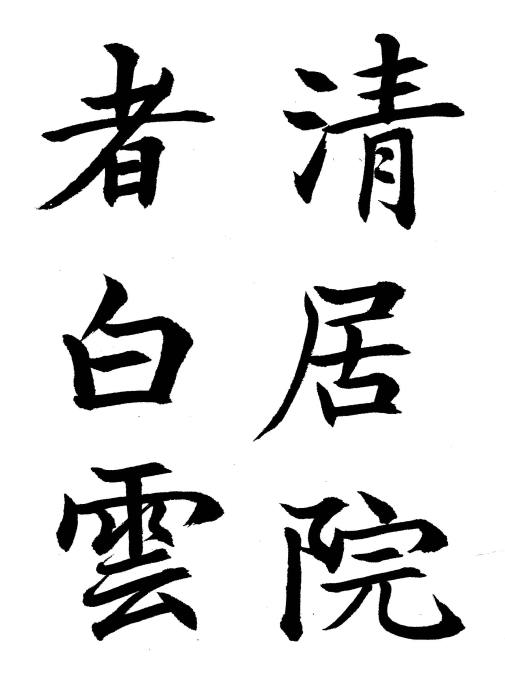 清居院
者白雲